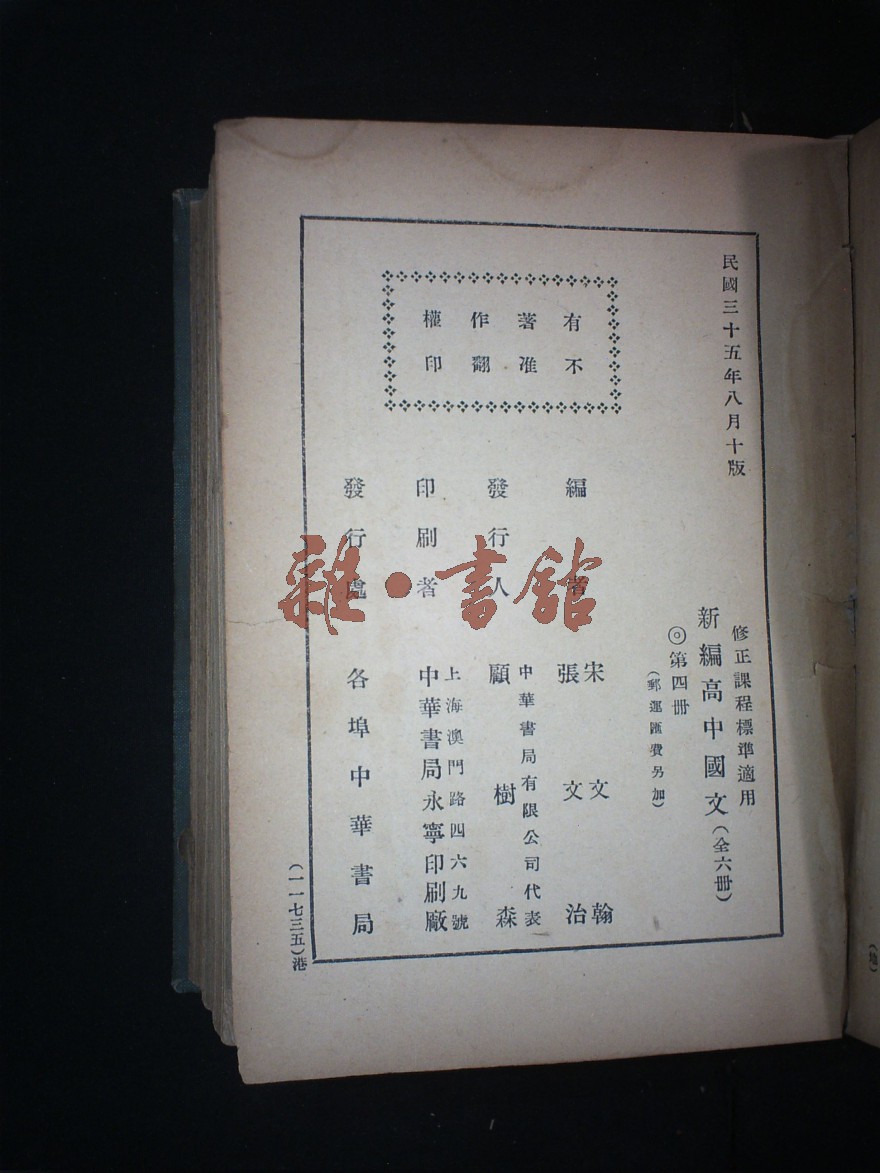 民國三十五年八月十版
修正課程標準適用
新編高中國文(全六冊)
◎第四冊
(郵運匯費另加)
有不
著准
作翻
權印
編者
宋文翰
張文治
發行人
中華書局有限公司代表
顧樹森
印刷者
上海澳門路四六九號
中華書局永寧印刷廠
發行處
各埠中華書局
(一一七三五)港
雜·書館
(地)